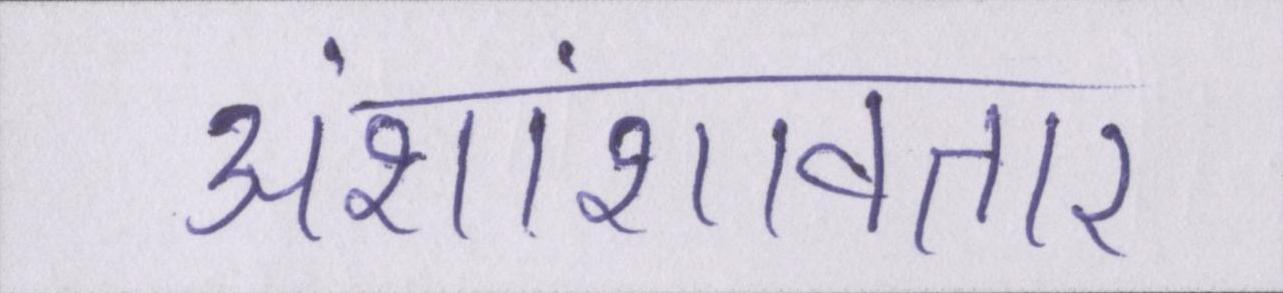 अंशांशावतार